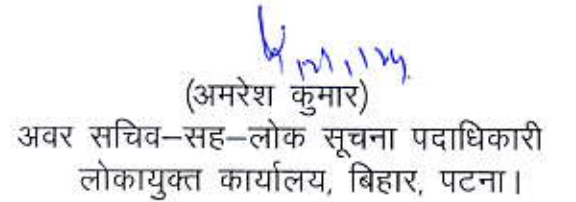 (अमरेश कुमार)
अवर सचिव–सह–लोक सूचना पदाधिकारी
लोकायुक्त कार्यालय, बिहार, पटना।